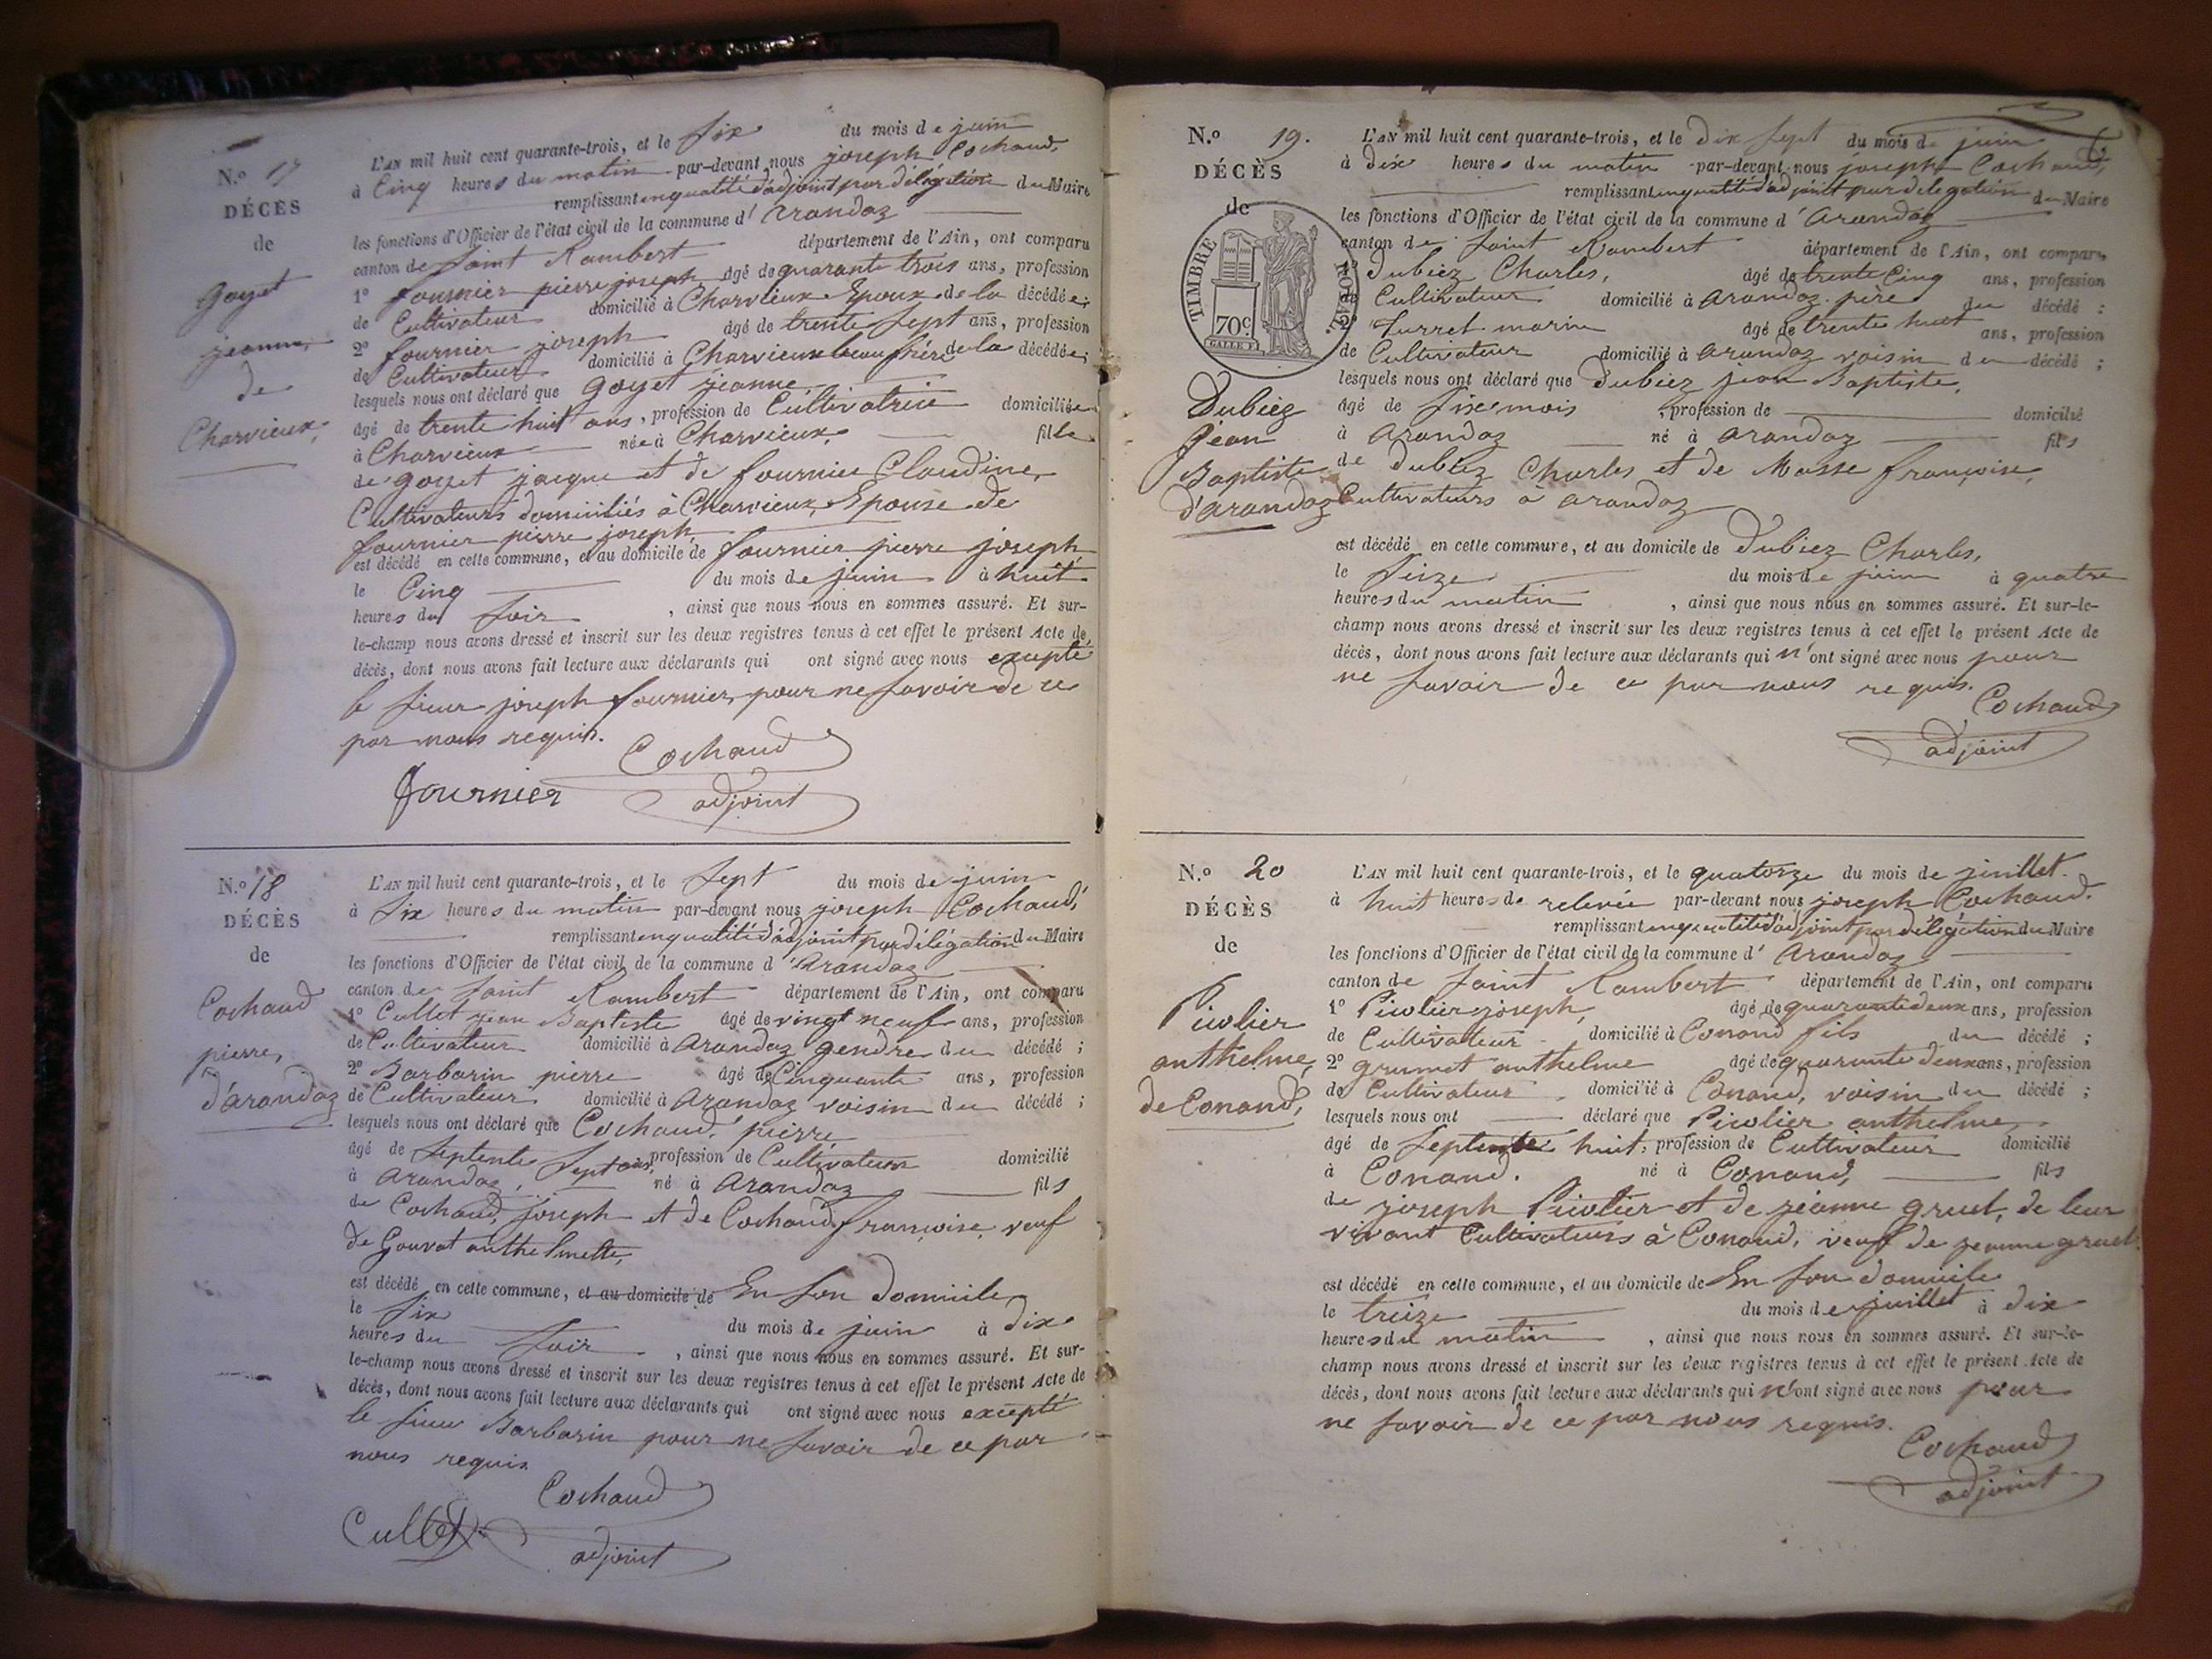 N.º 17
DÉCÈS
de
Goyet
jeanne,
de
Charvieux,
L'AN mil huit cent quarante-trois, et le six du mois de juin
à Cinq heures du matin par-devant nous joseph Cochaud,
remplissant en qualité d'adjoint par délégation du Maire
les fonctions d'Officier de l'état civil de la commune d' Arandaz
canton de Saint Rambert département de l'Ain, ont comparu
1º fournier pierre joseph âgé de quarante trois ans, profession
de Cultivateur domicilié à Charvieux Epoux de la décédée;
2º fournier joseph âgé de trente sept ans, profession
de Cultivateur domicilié à Charvieux beau frère de la décédée;
lesquels nous ont déclaré que Goyet jeanne,
âgé de trente huit ans, profession de Cultivatrice domiciliée
à Charvieux née à Charvieux, fille
de goyet jacque et de fournier Claudine,
Cultivateurs domiciliés à Charvieux, Epouse de
fournier pierre joseph
est décédé en cette commune, et au domicile de fournier pierre joseph
le Cinq du mois de juin à huit
heures du soir, ainsi que nous nous en sommes assuré. Et sur-
le-champ nous avons dressé et inscrit sur les deux registres tenus à cet effet le présent Acte de
décès, dont nous avons fait lecture aux déclarants qui ont signé avec nous excepté
le sieur joseph fournier, pour ne savoir de ce
par nous requis.
Cochaud
Fournier adjoint
N.º 18
DÉCÈS
de
Cochaud
pierre,
d'arandaz
L'AN mil huit cent quarante-trois, et le sept du mois de juin
à six heures du matin par-devant nous joseph Cochaud,
remplissant en qualité d'adjoint par délégation du Maire
les fonctions d'Officier de l'état civil de la commune d' Arandaz
canton de Saint Rambert département de l'Ain, ont comparu
1º Cullet jean Baptiste âgé de vingt neuf ans, profession
de Cultivateur domicilié à Arandaz gendre du décédé;
2º Barbarin pierre âgé de Cinquante ans, profession
de Cultivateur domicilié à Arandaz voisin du décédé;
lesquels nous ont déclaré que Cochaud, pierre
âgé de septente sept ans, profession de Cultivateur domicilié
à Arandaz, né à Arandaz fils
de Cochaud, joseph et de Cochaud françoise, veuf
de Gouvat anthelmette,
est décédé en cette commune, et au domicile de En son domicile
le six du mois de juin à dix
heures du soir, ainsi que nous nous en sommes assuré. Et sur-
le-champ nous avons dressé et inscrit sur les deux registres tenus à cet effet le présent Acte de
décès, dont nous avons fait lecture aux déclarants qui ont signé avec nous excepté
le sieur Barbarin pour ne savoir de ce par
nous requis.
Cochaud
Cullet adjoint
N.º 19.
DÉCÈS
de
TIMBRE ROYAL
70c
GALLE F.
Dubiez
jean
Baptiste
d'arandaz
L'AN mil huit cent quarante-trois, et le dix sept du mois de juin
à dix heures du matin par-devant nous joseph Cochaud,
remplissant en qualité d'adjoint par délégation du Maire
les fonctions d'Officier de l'état civil de la commune d' Arandaz
canton de Saint Rambert département de l'Ain, ont comparu
1º Dubiez Charles, âgé de trente Cinq ans, profession
de Cultivateur domicilié à Arandaz père du décédé;
2º Jurret marin âgé de trente huit ans, profession
de Cultivateur domicilié à Arandaz voisin du décédé;
lesquels nous ont déclaré que Dubiez jean Baptiste,
âgé de six mois, profession de domicilié
à Arandaz né à Arandaz fils
de Dubiez Charles et de Masse françoise,
Cultivateurs à arandaz
est décédé en cette commune, et au domicile de Dubiez Charles,
le seize du mois de juin à quatre
heures du matin, ainsi que nous nous en sommes assuré. Et sur-le-
champ nous avons dressé et inscrit sur les deux registres tenus à cet effet le présent Acte de
décès, dont nous avons fait lecture aux déclarants qui n'ont signé avec nous pour
ne savoir de ce par nous requis.
Cochaud
adjoint
N.º 20
DÉCÈS
de
Picolier
anthelme,
de Conand,
L'AN mil huit cent quarante-trois, et le quatorze du mois de juillet.
à huit heures de relevée par-devant nous joseph Cochaud.
remplissant en qualité d'adjoint par délégation du Maire
les fonctions d'Officier de l'état civil de la commune d' Arandaz
canton de Saint Rambert département de l'Ain, ont comparu
1º Picolier joseph, âgé de quarante deux ans, profession
de Cultivateur domicilié à Conand fils du décédé;
2º grumet anthelme âgé de quarante deux ans, profession
de Cultivateur domicilié à Conand, voisin du décédé;
lesquels nous ont déclaré que Picolier anthelme,
âgé de septente huit, profession de Cultivateur domicilié
à Conand. né à Conand, fils
de joseph Picolier et de jeanne gruet, de leur
vivant Cultivateurs à Conand, veuf de jeanne gruet.
est décédé en cette commune, et au domicile de En son domicile
le treize du mois de juillet à dix
heures du matin, ainsi que nous nous en sommes assuré. Et sur-le-
champ nous avons dressé et inscrit sur les deux registres tenus à cet effet le présent Acte de
décès, dont nous avons fait lecture aux déclarants qui n'ont signé avec nous pour
ne savoir de ce par nous requis.
Cochaud
adjoint